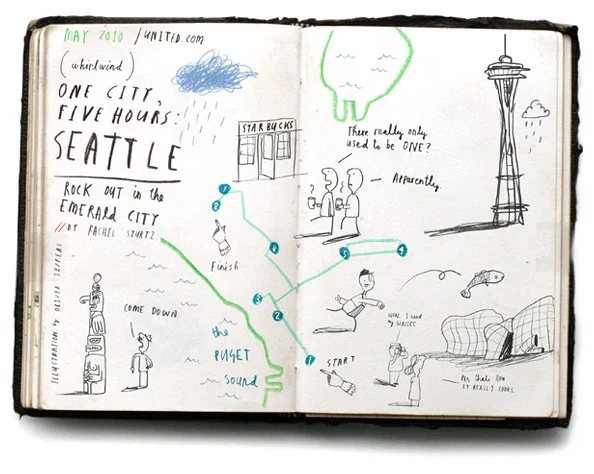 MAY 2010 / UNITED.COM
(whirlwind)
ONE CITY,
FIVE HOURS:
SEATTLE
ROCK OUT in the
EMERALD CITY
// BY RACHEL STURTZ
ILLUSTRATION by OLIVER JEFFERS
STARBUCKS
There really only
used to be ONE?
?
Apparently.
7
8
Finish
6
5
4
3
2
1
START
COME DOWN
the
PUGET
Sound
I need
my GLASSES
No, that's how
it REALLY LOOKS.